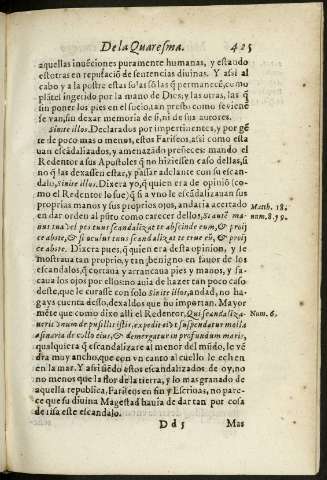 De la Quaresma. 425
aquellas inuẽciones puramente humanas, y estando
estotras en reputaciõ de sentencias diuinas. Y assi al
cabo y a la postre estas solas sõ las q̃ permanecẽ, como
plãtel ingerido por la mano de Dios, y las otras, las q̃
sin poner los pies en el suelo, tan presto como se viene
se van, sin dexar memoria de si, ni de sus autores.
Sinite illos. Declarados por impertinentes, y por gẽ
te de poco mas o menus, estos Fariseos, assi como esta
uan escãdalizados, y amenazado prẽceces: mando el
Redentor a sus Apostoles q̃ no hiziessen caso dellas, si
no q̃ las dexassen estar, y passar adelante con su escan-
dalo, Sinite illos. Dixera yo, q̃ quien era de opiniõ (co-
mo el Redentor lo fue) q̃ si a vno le escãdalizauan sus
proprias manos y sus proprios ojos, andaria acertado
en dar orden al põto como carecer dellos, Si autẽ ma-
nus tua vel pes tuus scandalizat te abscinde eum, & proij
ce abs te, & si oculus tuus scandalizat te erue eũ, & proij
ce abs te. Dixera pues, q̃ quien era desta opinion, y se
mostraua tan proprio, y tan benigno en fauor de los
escandalos, q̃ cortaua y arrancaua pies y manos, y sa-
caua los ojos por ellos: no auia de hazer tan poco caso
deste, que le curasse con solo Sinite illos, andad, no ha-
gays cuenta desso, dexaldos que no importan. Mayor
mẽte que como dixo alli el Redentor, Qui scandaliza-
uerit vnum de pusillis istis, expedit ei vt suspendatur mola
asinaria de collo eius, & demergatur in profundum maris,
qualquiera q̃ escandalizare al menor del mũdo, le vẽ
dra muy ancho, que con vn canto al cuello le echen
en la mar. Y assi siẽdo estos escandalizados de oy, no
no menos que la flor de la tierra, y lo mas granado de
aquella republica, Fariseos en fin y Escribas, no pare-
ce que su diuina Magestad hauia de dar tan por cosa
de risa este escandalo.
Matth. 18.
num. 8. y 9.
Num. 6.
Dd 5 Mas